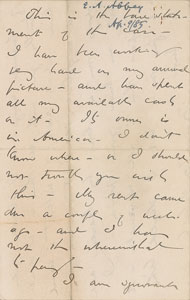 E. A. Abbey
Ap. 9/85
This is the bare state-
ment of the case—
I have been working
very hard on my annual
picture— and have spent
all my available cash
on it— The owner is
in America— I don't
know where— or I should
not trouble you with
this— My rent came
due a couple of weeks
ago— and I have
not the wherewithal
to pay it—
I am ignorant